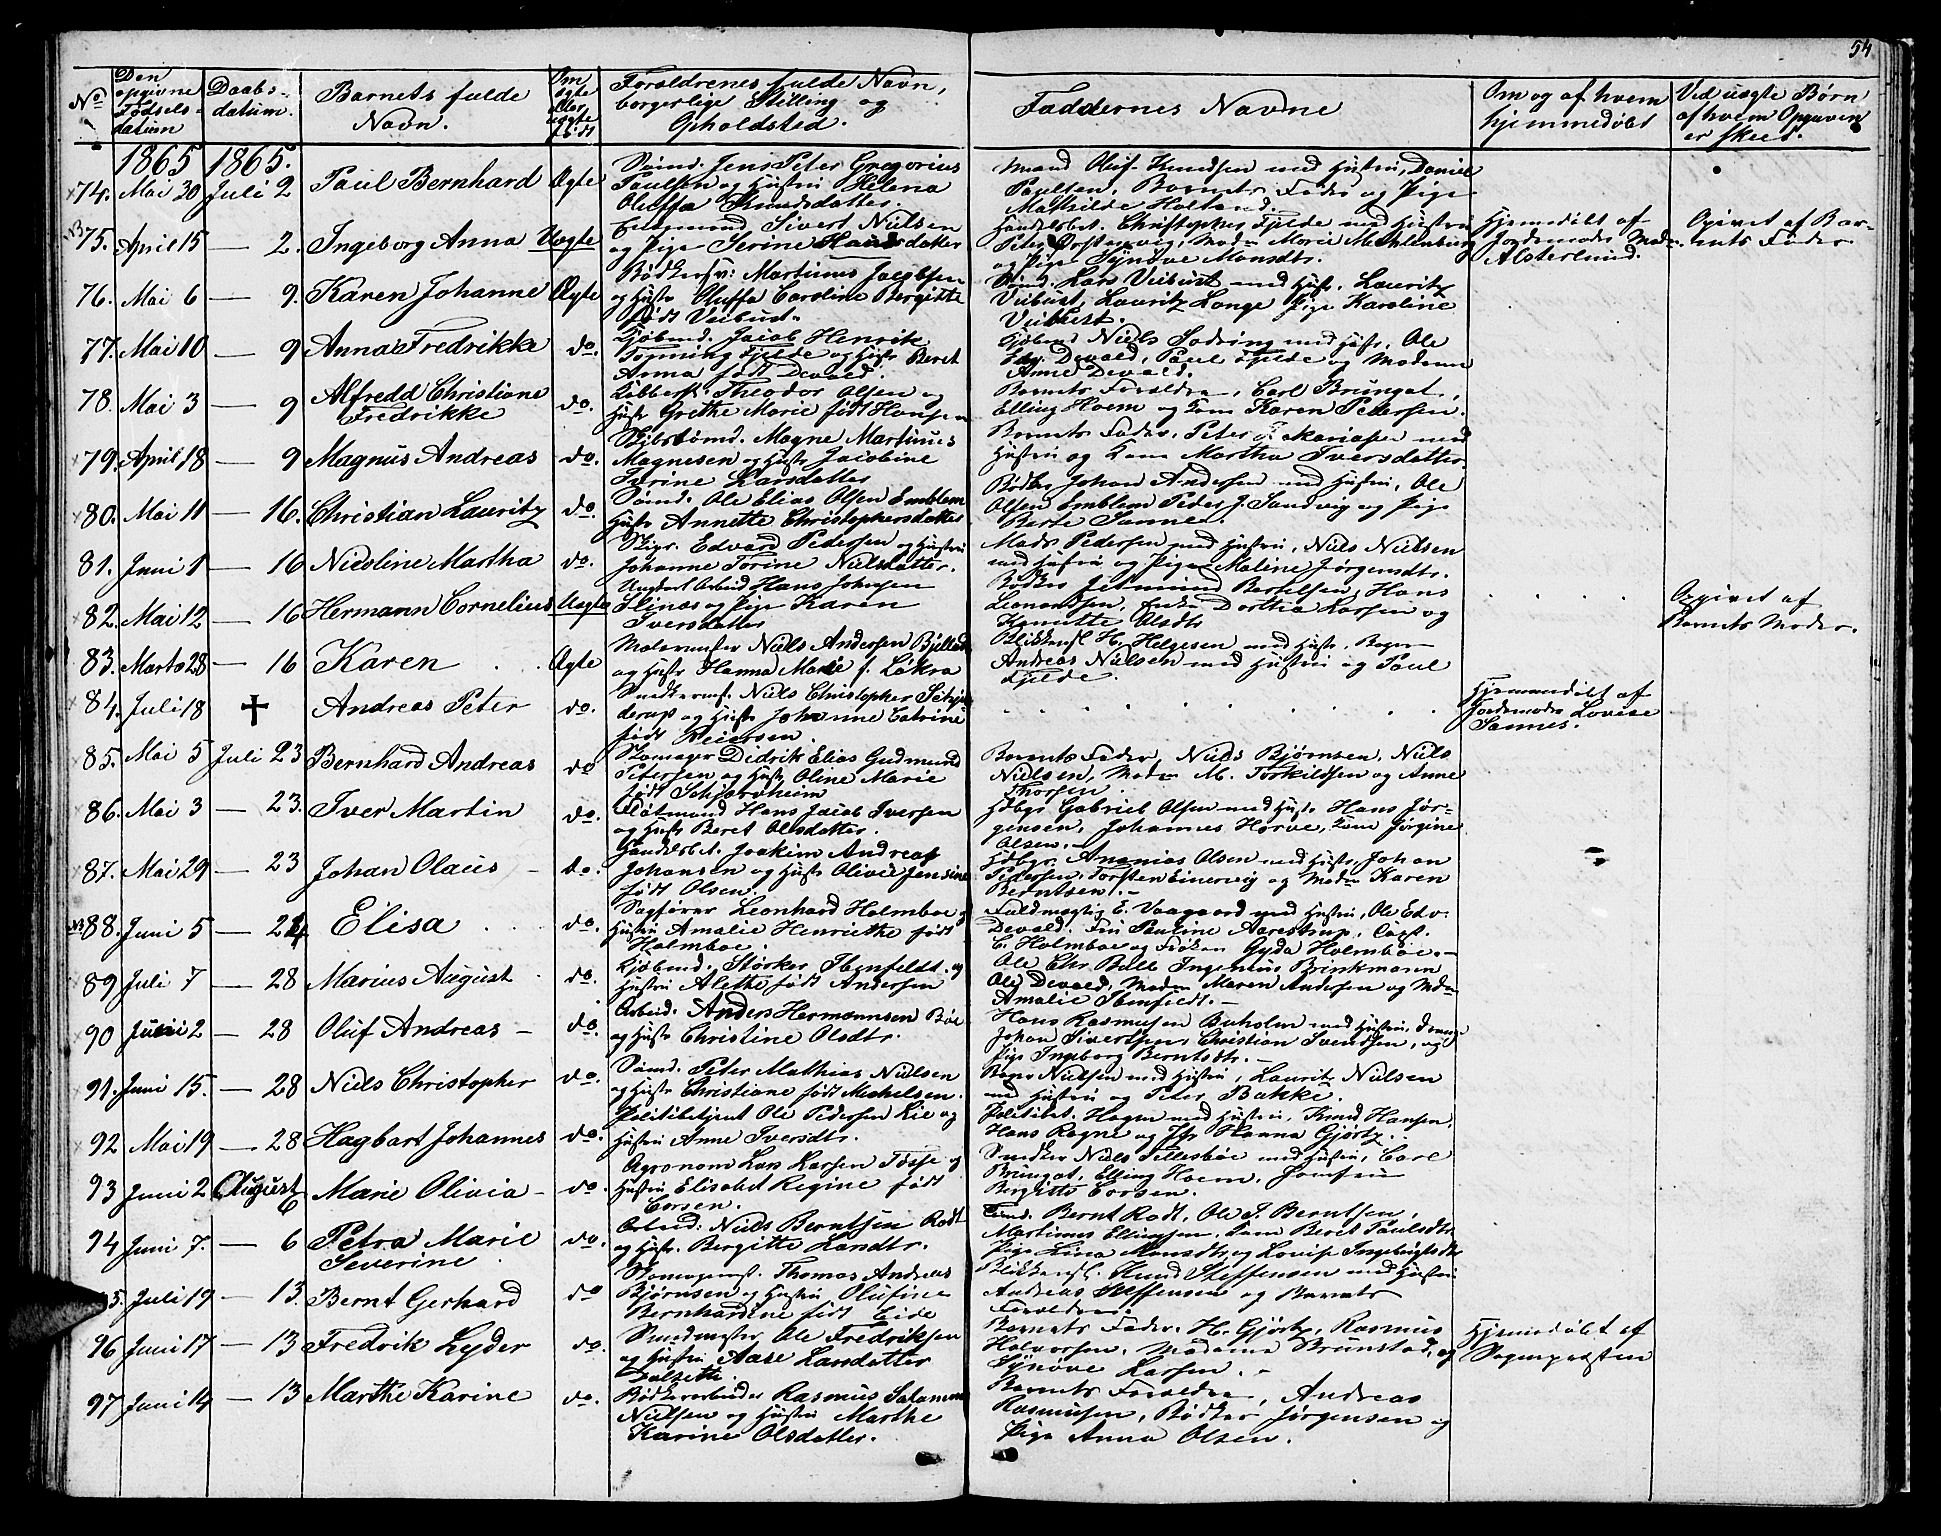 54
No
Den opgivne Fødsels-datum
Daabs-datum.
Barnets fulde Navn.
Om ægte eller uægte født
Forældrenes fulde Navn, borgerlige Stilling og Opholdsted.
Faddernes Navne
Om og af hvem hjemmedøbt
Ved uægte Børn af hvem Opgaven er skeet.
1865 1865.
74. Mai 30 Juli 2 Paul Bernhard Ægte
Sømd. Jens Peter Gregorius
Paulsen og Hustri Helena
Oluffa Knudsdatter.
mand Oluf Knudsen med Hustri, Daniel
Paulsen, Barnets Fader og Pige
Mathilde Holland.
NB 75. April 15 — 2. Ingeborg Anna Uægte
Ungmand Sivert Nielsen
og Pige Serine Hansdatter
Handelsbet. Christopher Fjelde med Hustri
Peter Torstenvig, Madm Marie Mechlenburg
og Pige Synöve Monsdtr.
Hjemedöbt af
Jordemoder Madm
Alsterlund.
Opivet af Bar-
nets Fader
76. Mai 6 — 9. Karen Johanne Ægte
Bödkersv: Martinus Jacobsen
og Hustr Oluffa Caroline Bergitte
født Veibust.
Sömd. Lars Veibust med Hustr. Lauritz
Veibust, Lauritz Longe Pige Karoline
Veibust.
77. Mai 10 — 9 Anna Fredrikke do.
Kjöbmd. Jacob Henrik
Tönning Fjelde og Hustr Beret
Anna født Devold.
Kjöbmd Niels Sodring med Hustr, Ole
Edv. Devold, Paul Fjelde og Madame
Anne Devold.
78. Mai 3 — 9 Alfredd Christiane
Fredrikke do.
Kobbersl. Theodor Olsen og
Hustr Grethe Marie født Hansen
Barnets Forældre, Carl Brungot,
Elling Hoem og Kone Karen Petersen.
79. April 18 — 9 Magnus Andreas do.
Skibstömd. Magne Martinus
Magnesen og Hustr Jacobine
Serine Larsdatter
Barnets Fader, Peter Zakariasen med
Hustri og Kone Martha Iversdatter.
80. Mai 11 — 16. Christian Lauritz do.
Sömd. Ole Elias Olsen Emblem
Hustr Annette Christophersdatter
Bödker Johan Andersen med Hustri, Ole
Olsen Emblem Peder J. Sandvig og Pige
Berte Sanne.
81. Juni 1 — 16 Nicoline Martha do.
Skpr. Edvard Pedersen og Hustri
Johanne Torine Nielsdatter.
Mads Pedersen med Hustri, Niels Nielsen
med Hustri og Pige Maline Jørgensdtr.
82. Mai 12 — 16 Hermann Cornelius Uægte
Ungkarl Arbeid Hans Johnsen
Flinæs og Pige Karen
Iversdatter
Bödker Bertelsen, Hans
Leonardsen, Enke Dorthia Larsen og
Olsdtr
Opivet af
Barnets Moder.
83. Marts 28 — 16 Karen Ægte
Malermester Niels Andersen
og Hustr Hanna Marie f. Løkra
Blikkensl. H. Helgesen med Hustr, Bager
Andreas Nielsen med Hustri og Paul
Fjelde.
84. Juli 18 † Andreas Peter do.
Snedkermst. Niels Christopher Schjel-
derup og Hustr Johanne Catrine
født Reiersen.
Hjemmedöbt af
Jordemoder Lovise
Sannes.
85. Mai 5 Juli 23 Bernhard Andreas do
Skomager Didrik Elias Gudmund
Petersen og Hustr Oline Marie
født
Barnets Fader, Niels Bjørnsen, Niels
Nielsen, Madm M. Torkildsen og Anne
Thorsen.
86. Mai 3 — 23. Iver Martin do.
Hans Jacob Iversen
og Hustr Beret Olesdatter.
Hdbgr Gabriel Olsen med Hustr Hans Jør-
gensen, Johannes Horve, Kone Jørgine
Olsen.
87. Mai 29 — 23 Johan Olaus do.
Handelsbet. Joakim Andreas
Johansen og Hustr Olive Jensine
født Olsen.
Hdbgr. Ananias Olsen med Hustr, Johan
Pedersen, Torsten Einervig og Madm Karen
Berntsen.
NB 88. Juni 5 — 24 Elisa do.
Sagfører Leonhard Holmboe og
Hustri Amalie Henriethe født
Holmboe.
Fuldmægtig E. Vaagaard med Hustri, Ole Edv.
Devold, Frk Pauline Aarestrup, Capt.
C. Holmboe og Frøken Gyda Holmboe.
89 Juli 7 — 28 Marius August do.
Kjöbmd. Størker Ibenfeldt. og
Hustri Alethe født Andersen
Ole Chr. Bull Ingenius Brinkmann
Ole Devold, Madm Maren Andersen og Mdm
Amalie Ibenfeldt.
90 Juni 2 — 28 Oluf Andreas do.
Arbeid. Anders Hermannsen Böe
og Hustr Christine Olsdtr.
Hans Rasmusen Buholm med Hustri, dreng
Johan Sivertsen, Christian Svendsen, og
Pige Ingeborg Berntsdtr.
91. Juni 15. — 28 Niels Christopher do.
Sömd. Peter Mathias Nielsen
og Hustr Christiane født Michelsen.
Hans Nielsen med Hustri, Lauritz Nielsen
med Hustri og Peter Bakke.
92 Mai 19 — 28 Hagbart Johannes do.
Politibetjent Ole Pedersen Lie og
Hustri Anne Iversdtr.
Politibet. Hagen med Hustri, Knud Hansen,
Hans Rogne og Jfr Hanna Gjørtz.
93 Juni 2 August 6 Marie Olivia do.
Agronom Lars Larsen Tosse og
Hustri Elisabet Regine født
Corsen.
Snedker Niels Tellesböe med Hustri, Carl
Brungot, Elling Hoem, Jomfru
Bergitte Corsen.
94 Juni 7. — 6 Petra Marie
Severine do.
Arbeid. Niels Berntsen Rødt
og Hustr. Bergitte Landtr.
Bernt Rødt, Ole P. Berntsen,
Martinus Ellingsen, Kone Beret Paulsdtr
Pige Lina Monsdtr, og Lovise Ingebrigtsdtr
95. Juli 19 — 13. Bernt Gerhard do
Skomagermst. Thomas Andreas
Bjørnsen og Hustri Olufine
Bernhardine født Eide
Blikkensl. Knud Steffensen med Hustri
Andreas Steffensen og Barnets
Forældre.
96 Juni 17 — 13 Fredrik Lyder do.
Smedmester Ole Fredriksen
og Hustri Aase Larsdatter
Barnets Fader. H. Gjørtz, Rasmus
Halvorsen, Madame Brunstad, og
Synöve Larsen.
Hjemmedöbt af
Sognepræsten
97 Juni 14 — 13 Marthe Karine do.
Bödkerarbeider Rasmus Salamon
Nielsen og Hustri Marthe
Karine Olsdatter.
Barnets Forældre, Andreas
Rasmusen, Bödker Jørgensen og
Pige Anna Olsen.